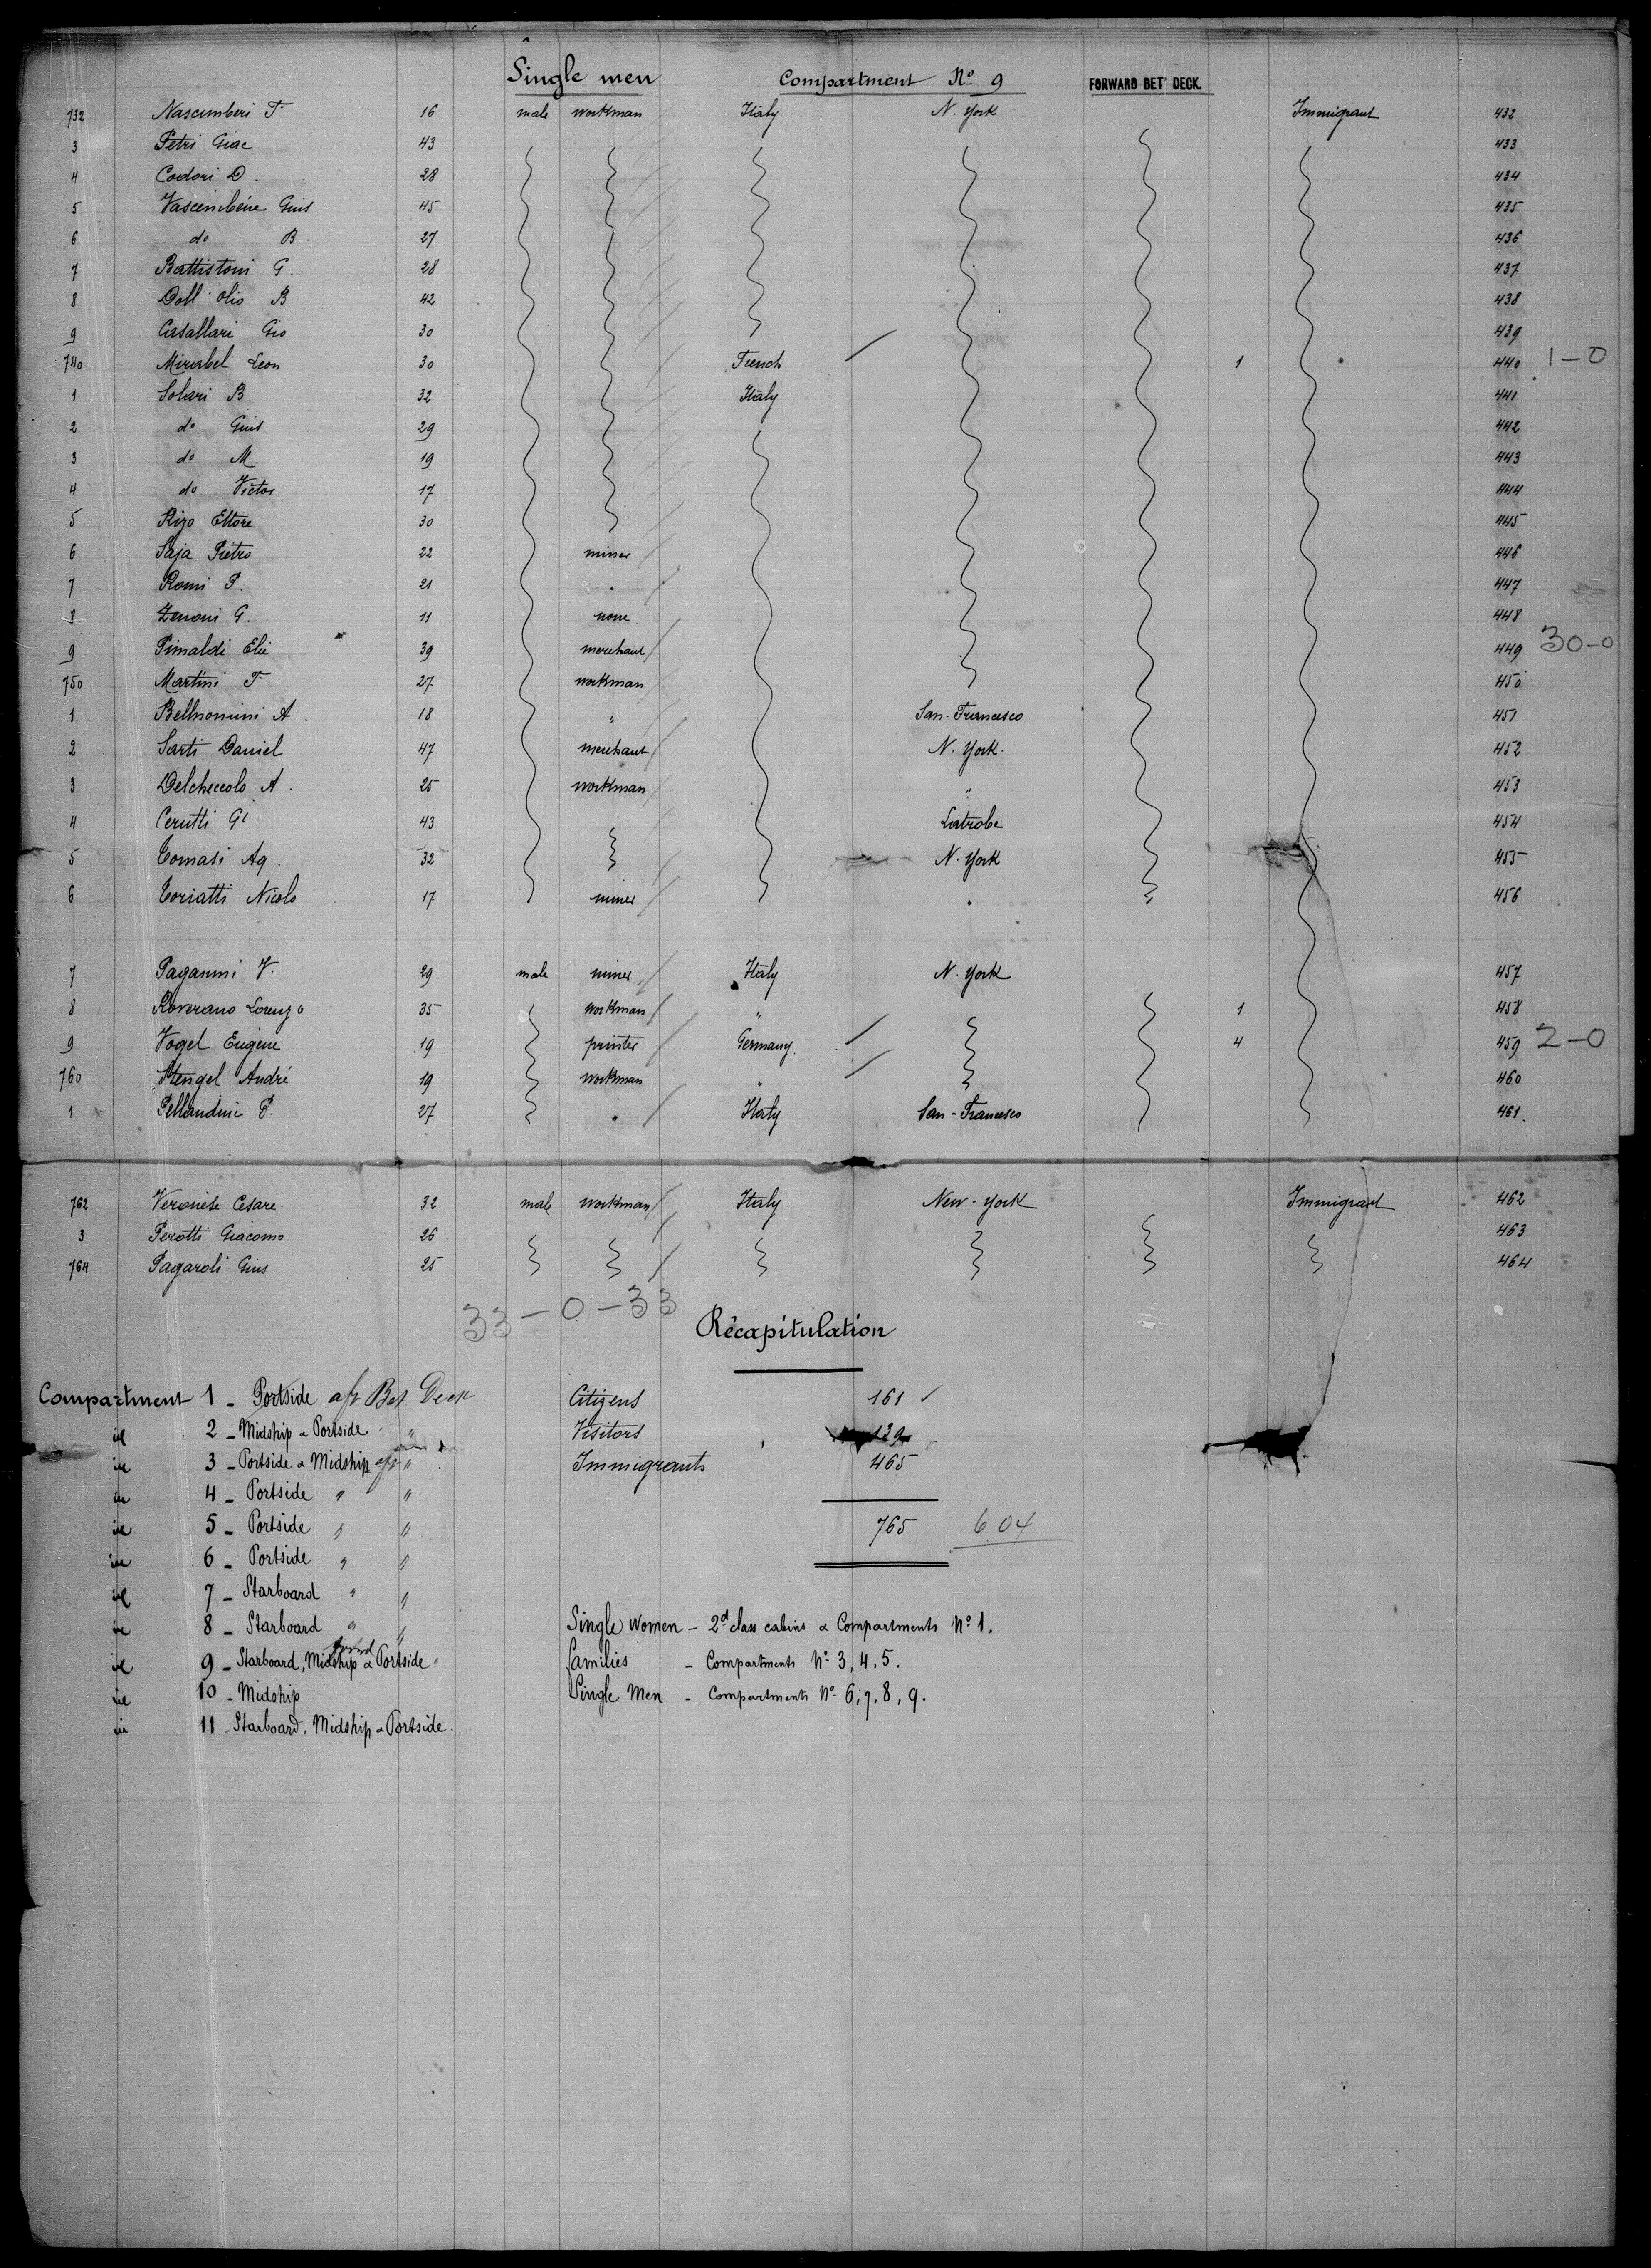 Single men Compartment No 9 FORWARD BET DECK.
732 Nascimberi F. 16 male workman Italy N. York Immigrant 432
3 Petri Giac 43 433
4 Codori D. 28 434
5 Vascimbéne Gius 45 435
6 do B. 27 436
7 Battistoni G. 28 437
8 Doll'Olio B 42 438
9 Casallari Gio 30 439
740 Mirabel Leon 30 French 1 440 1-0
1 Solari B 32 Italy 441
2 do Gius 29 442
3 do M. 19 443
4 do Victor 17 444
5 Rizo Ettore 30 445
6 Saja Pietro 22 miner 446
7 Romi P. 21 " 447
8 Zenoni G. 11 none 448
9 Rimaldi Elie 39 merchant 449 30-0
750 Martini F. 27 workman 450
1 Bellnomini A. 18 " San-Francesco 451
2 Sarti Daniel 47 merchant N. York. 452
3 Delcheccolo A. 25 workman " 453
4 Cerutti Gi 43 Latrobe 454
5 Tomasi Ag. 32 N. York 455
6 Toriatti Nicolo 17 miner " 456
7 Paganini V. 29 male miner Italy N. York 457
8 Roverano Lorenzo 35 workman " 1 458
9 Vogel Eugène 19 printer Germany. 4 459 2-0
760 Stengel André 19 workman " 460
1 Pellandini P. 27 " Italy San-Francesco 461.
762 Veronese Cesare. 32 male workman Italy New-York Immigrant 462
3 Perotti Giacomo 26 463
764 Pagaroli Gius 25 464
33-0-33
Récapitulation
Compartment 1 - Portside aft Bet. Deck Citizens 161
id 2 - Midship & Portside " Visitors 139
id 3 - Portside & Midship aft " Immigrants 465
id 4 - Portside " "
id 5 - Portside " " 765 604
id 6 - Portside " "
id 7 - Starboard " "
id 8 - Starboard " " Single Women - 2d class cabins & Compartments No 1.
id 9 - Starboard, Midship & Portside " families - Compartments No 3, 4, 5.
id 10 - Midship Single Men - Compartments No 6, 7, 8, 9.
id 11 - Starboard, Midship & Portside.